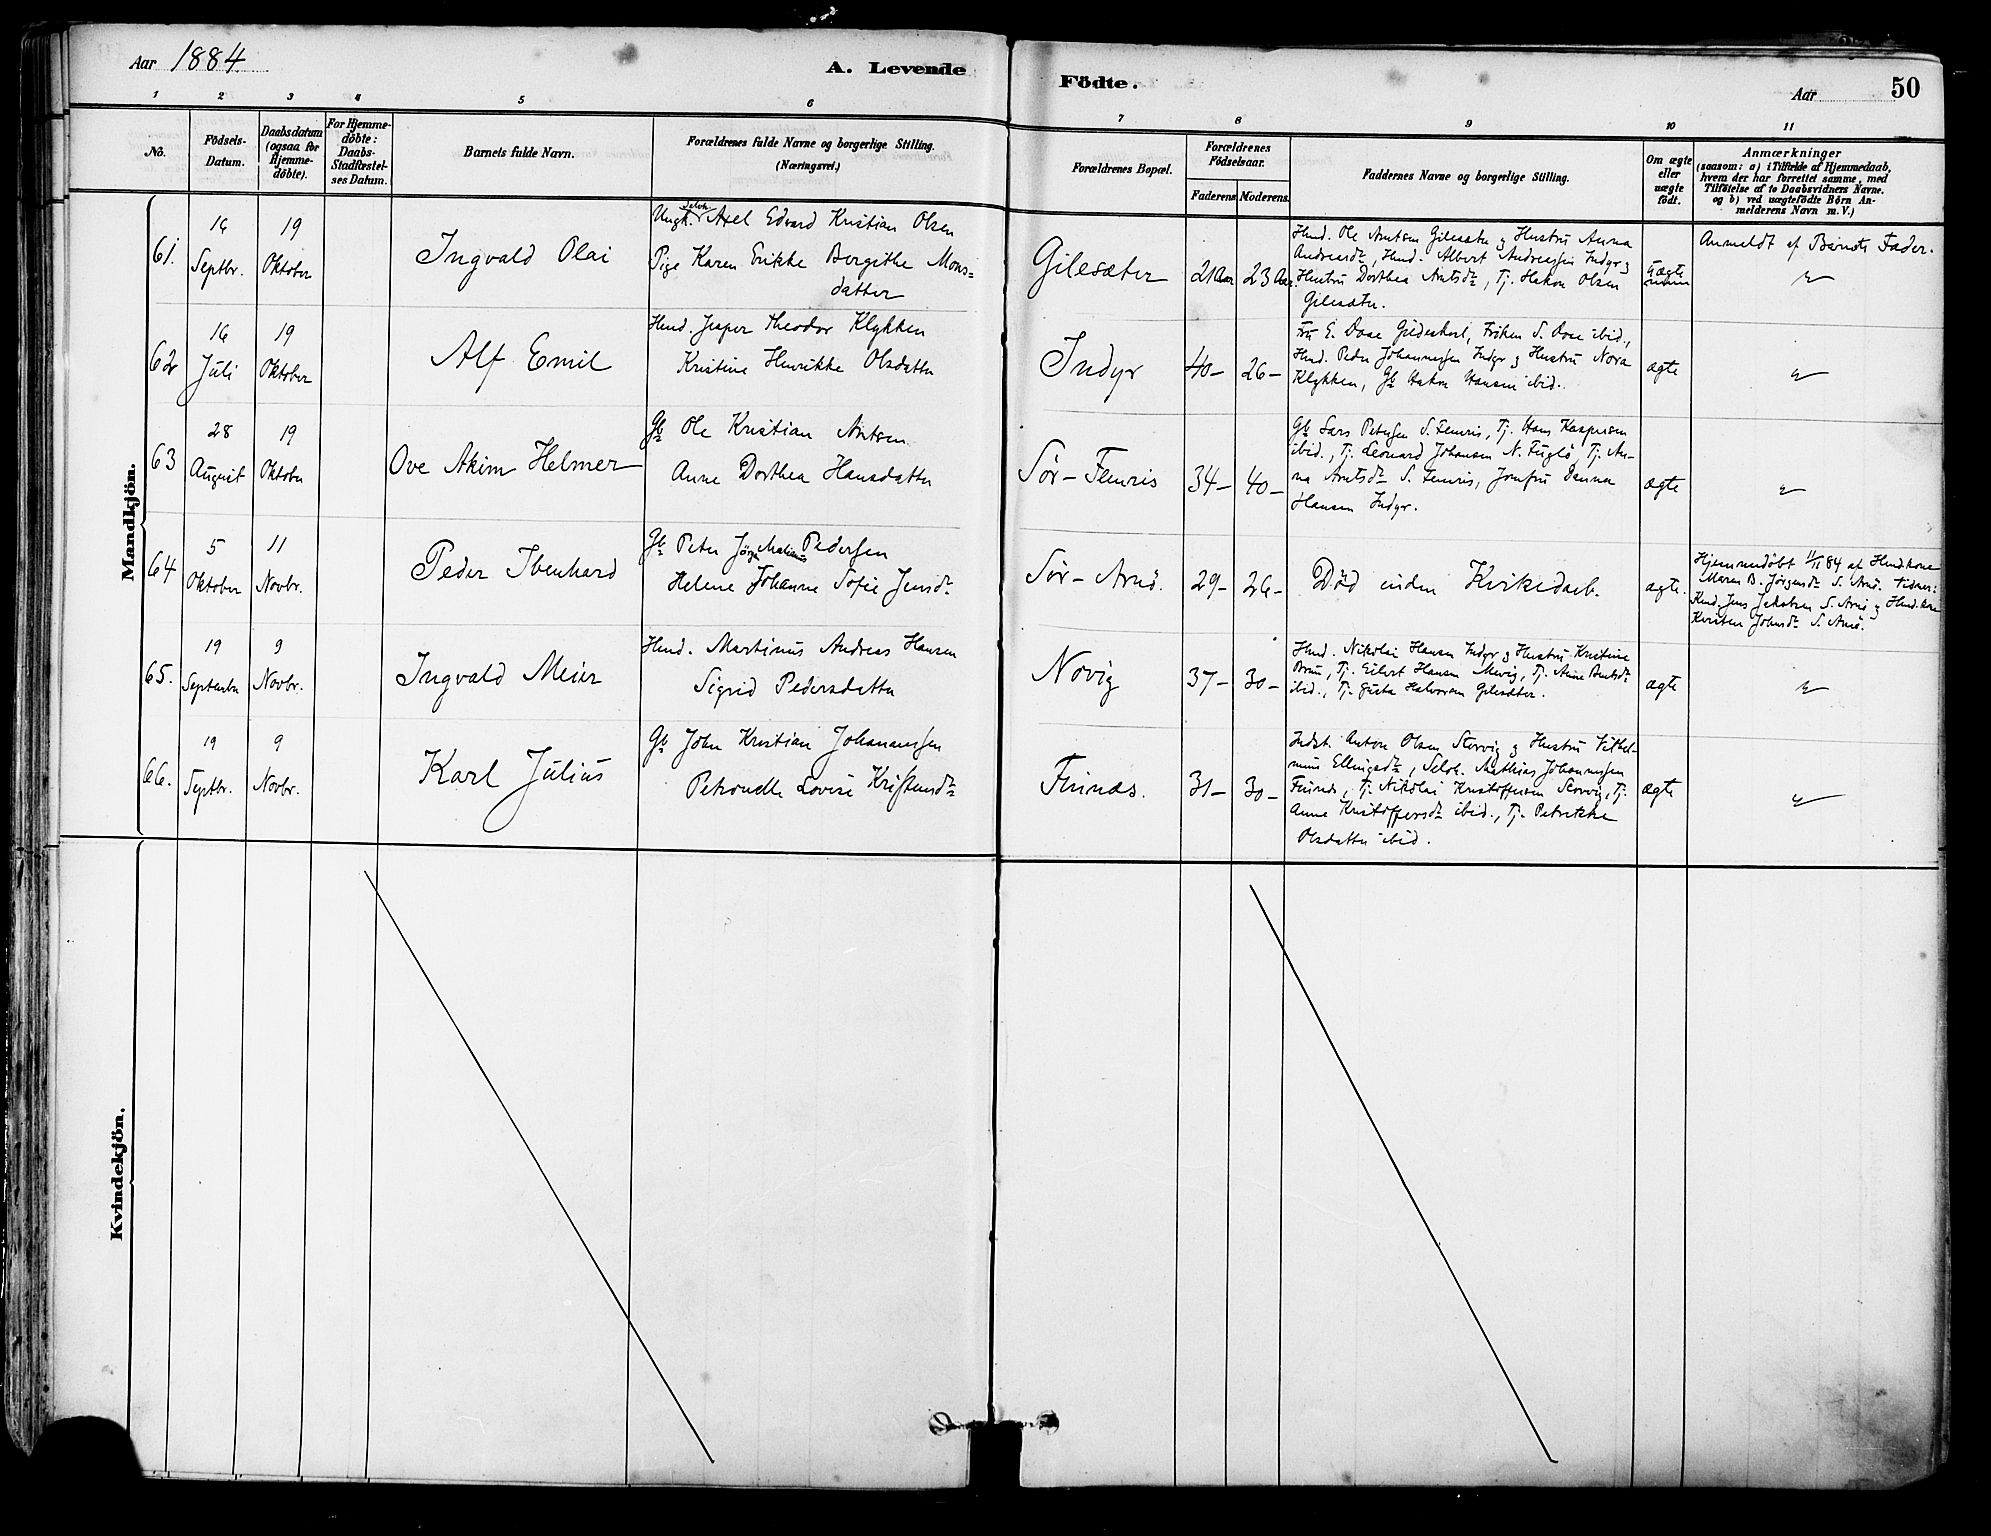 Aar 1884
A. Levende Födte.
Aar
50
1 2 3 4 5 6 7 8 9 10 11
No.
Födsels-Datum.
Daabsdatum (ogsaa for Hjemme-döbte).
For Hjemme-döbte: Daabs-Stadfæstel-ses Datum.
Barnets fulde Navn.
Forældrenes fulde Navne og borgerlige Stilling. (Næringsvei.)
Forældrenes Bopæl.
Forældrenes Födselsaar.
Faderens Moderens.
Faddernes Navne og borgerlige Stilling.
Om ægte eller uægte födt.
Anmærkninger
(saasom: a) i Tilfælde af Hjemmedaab,
hvem der har forrettet samme, med
Tilföielse af to Daabsvidners Navne.
og b) ved uægtefödte Börn An-
melderens Navn m. V.)
Mandkjön.
61.
16 Septbr.
19 Oktober
Ingvald Olai
Ungk. Selvk. Axel Edvard Kristian Olsen
Pige Karen Erikke Bergithe Mons-
datter
Gilesæter
21 Aar
23 Aar.
Hmd. Ole Arntsen Gilesæter & Hustru Anna
Andreasdr, Hmd. Albert Andreassen Indyr &
Hustru Dorthea Arntsdr, Tj. Hakon Olsen
Gilesæter.
Uægte
Anmeldt af Barnets Fader.
62
16 Juli
19 Oktober
Alf Emil
Hmd. Jesper Theodor Klykken
Kristine Henrikke Olsdatter
Indyr
40 –
26 –
Fru E. Dose Gildeskaal, Frøken S. Dose ibid.,
Hmd. Peder Johannessen Indyr & Hustru Nora
Klykken, Gb Hakon Hansen ibid.
ægte
63
28 August
19 Oktober
Ove Akim Helmer
Gb Ole Kristian Arntsen
Anne Dorthea Hansdatter
Sør – Femris
34 –
40 –
Gb Lars Petersen S. Femris, Tj. Hans Kaspersen
ibid., Tj. Leonard Johansen N. Fuglø, Tj. An-
na Arntsdr S. Femris, Jomfru Danna
Hansen Indyr.
ægte
64
5 Oktober
11 Novbr.
Peder Ibenhard
Gb Peter Jørgen Malinus Pedersen
Helene Johanne Sofie Jensdr
Sør – Arnø.
29 –
26 –
Død inden Kirkedaab.
ægte.
Hjemmedøbt 11/11 84 af Hmdkone
Maren B. Jørgensdr S. Arnø. Vidner:
Hmd. Jens Jakobsen S. Arnø & Hmd.kone
Kirsten Johnsdr S. Arnø.
65.
19 September
9 Novbr.
Ingvald Meier
Hmd. Martinus Andreas Hansen
Sigrid Pedersdatter
Novig
37 –
30 –
Hmd. Nikolai Hansen Indyr & Hustru Kristine
Brun, Tj. Eilert Hansen Mevig, Tj. Anne Berntsdr
ibid., Tj. Gusta Halvorsen Gilesæter.
ægte
66.
19 Septbr.
9 Novbr.
Karl Julius
Gb John Kristian Johannessen
Petronelle Lovise Kristensdr
Finnæs.
31 –
30 –
Indst. Anton Olsen Storvig & Hustru Vilhel-
mine Ellingsdr, Selvk. Mathias Johannessen
Finnæs, Tj. Nikolai Kristoffersen Storvig, Tj.
Anne Kristoffersdr ibid., Tj. Petrikke
Olsdatter ibid.
ægte
Kvindekjön.